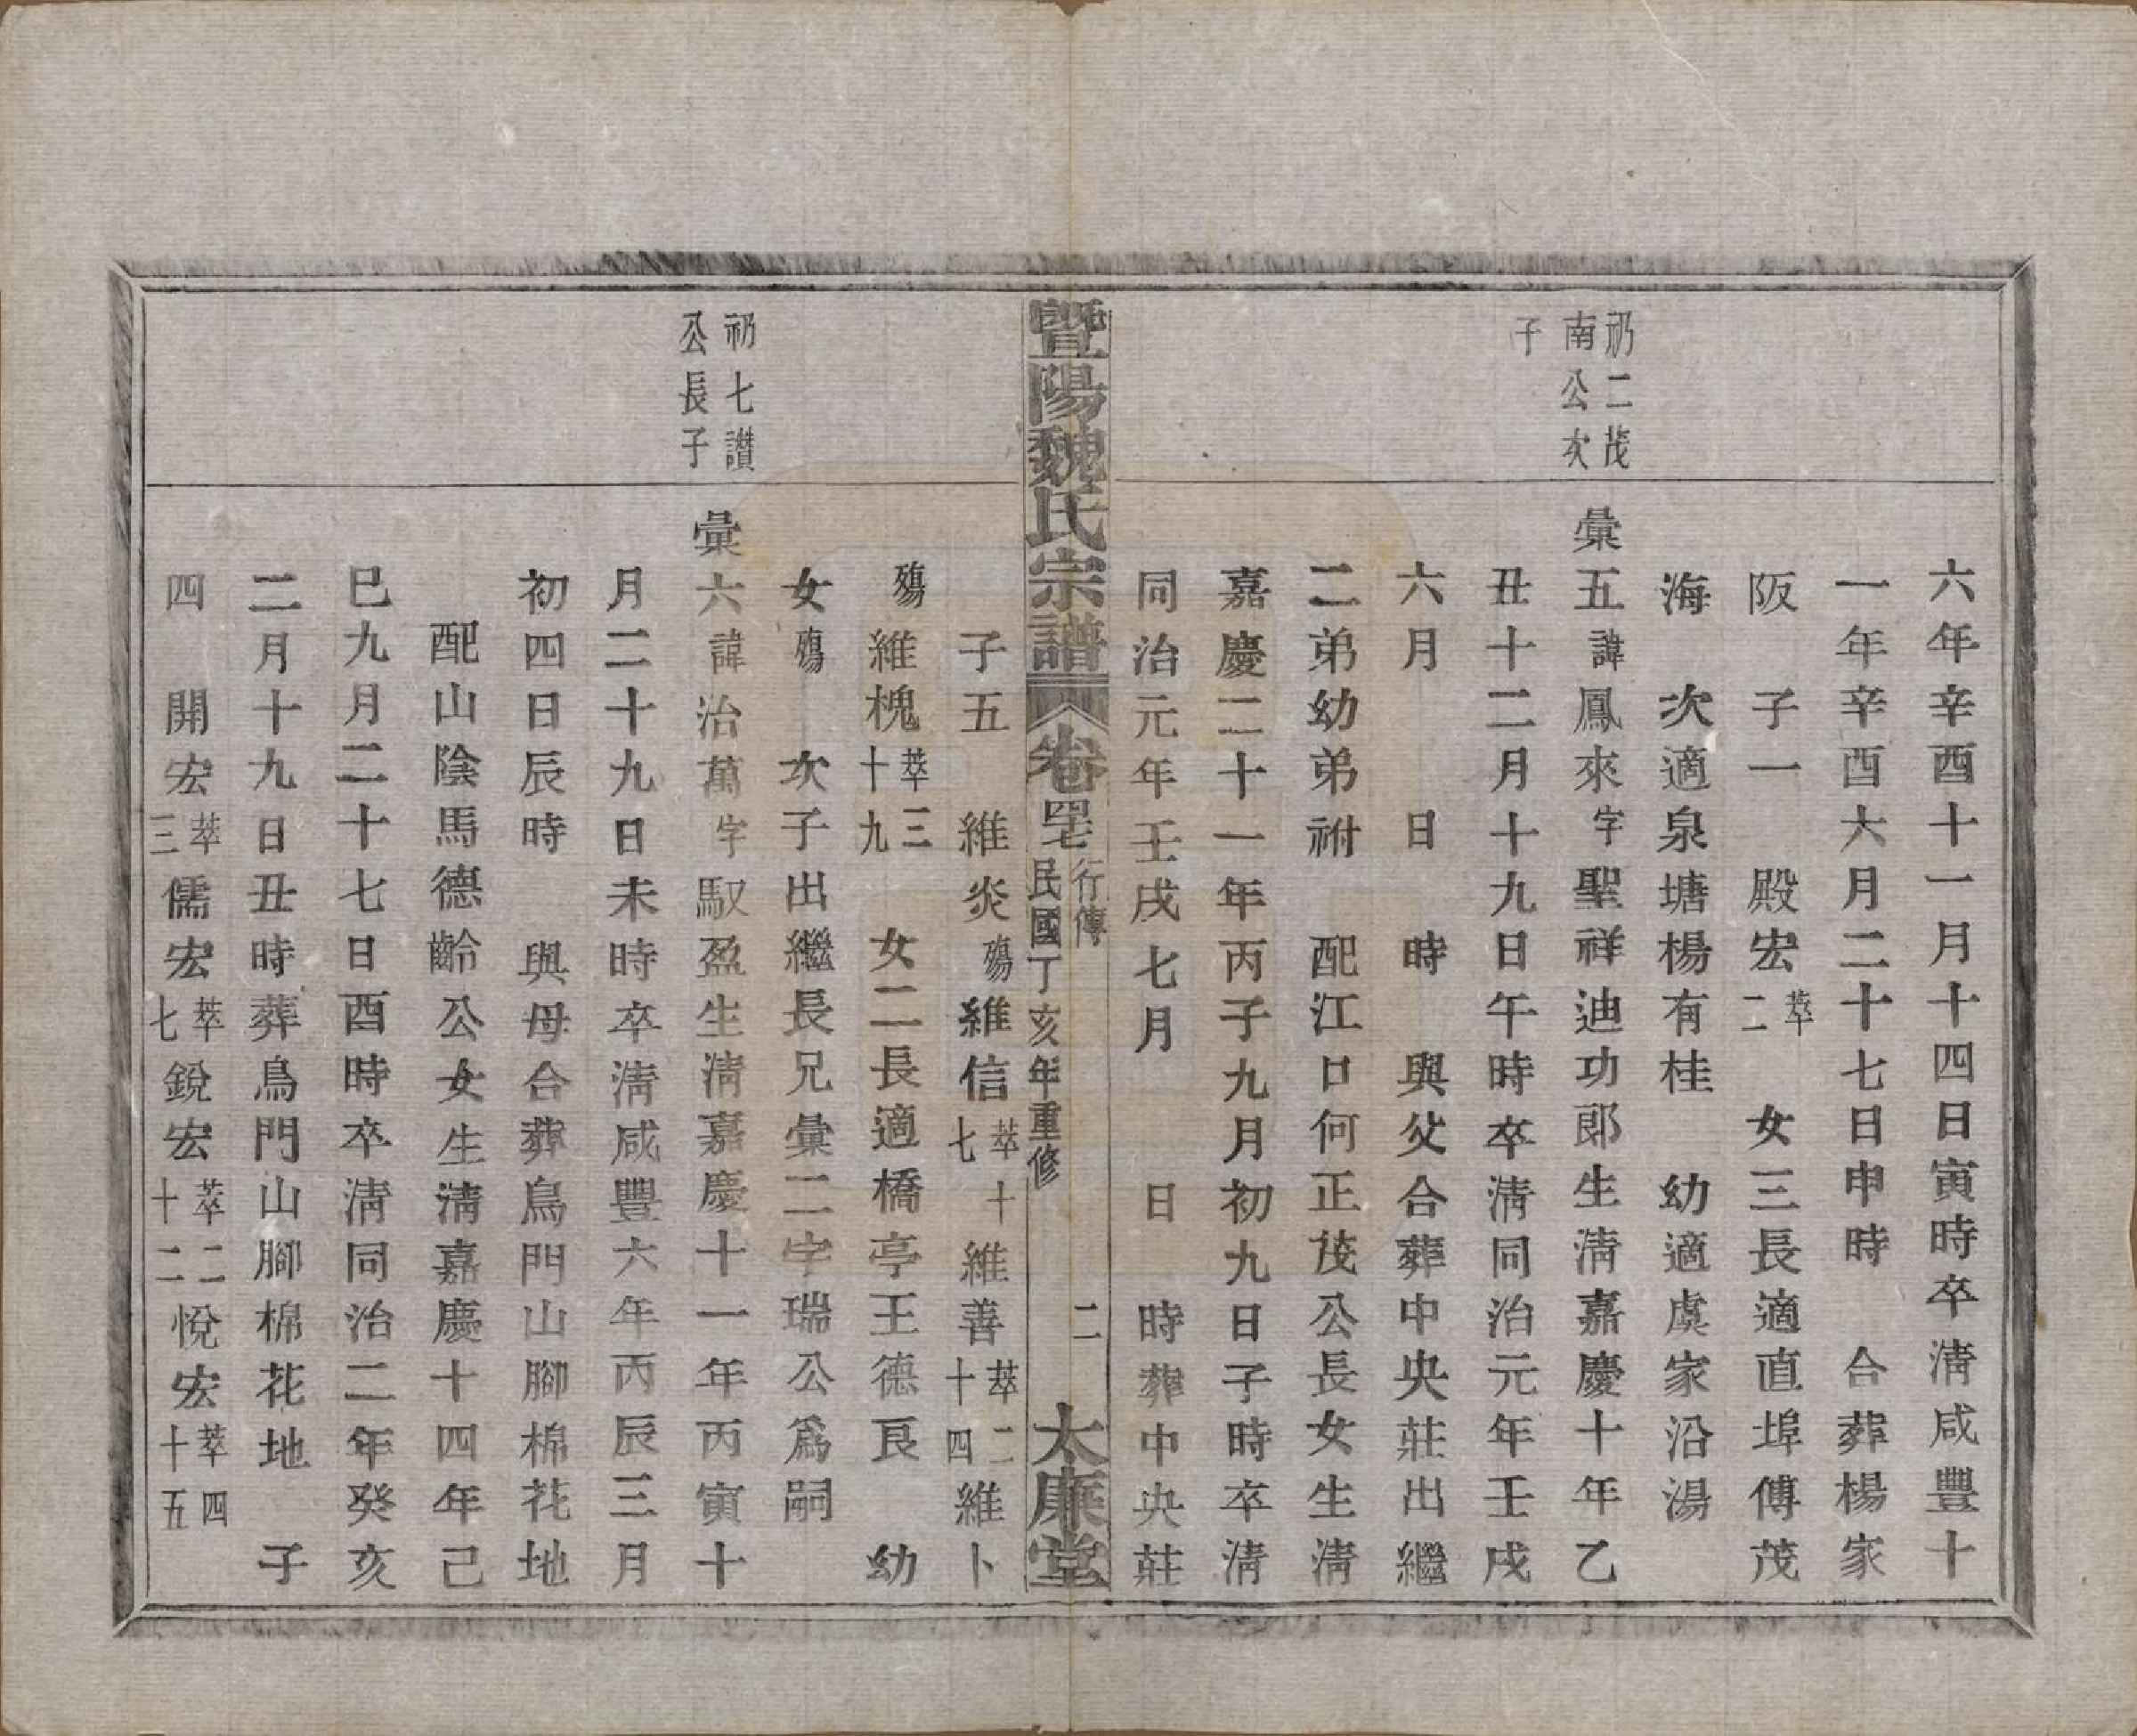 六年辛酉十一月十四日寅時卒清咸豐十
一年辛酉六月二十七日申時 合葬楊家
阪 子一 殿宏萃二 女三長適直埠傅茂
海 次適泉塘楊有桂 幼適虞家沿湯
礽二茂
南公次
子
彙五諱鳳來字聖祥迪功郎生清嘉慶十年乙
丑十二月十九日午時卒清同治元年壬戌
六月 日 時 與父合葬中央莊出繼
二弟幼弟祔 配江口何正茂公長女生清
嘉慶二十一年丙子九月初九日子時卒清
同治元年壬戌七月 日 時葬中央莊
暨陽魏氏宗譜 卷 行傳 民國丁亥年重修 二 太廉堂
子五 維炎殤維信萃十七維善萃二十四維卜
殤維槐萃三十九 女二長適橋亭王德良 幼
女殤 次子出繼長兄彙二字瑞公爲嗣
礽七讚
公長子
彙六諱治萬字馭盈生清嘉慶十一年丙寅十
月二十九日未時卒清咸豐六年丙辰三月
初四日辰時 與母合葬鳥門山腳棉花地
配山陰馬德齡公女生清嘉慶十四年己
巳九月二十七日酉時卒清同治二年癸亥
二月十九日丑時葬鳥門山腳棉花地 子
四 開宏萃三儒宏萃七銳宏萃二十二悅宏萃四十五